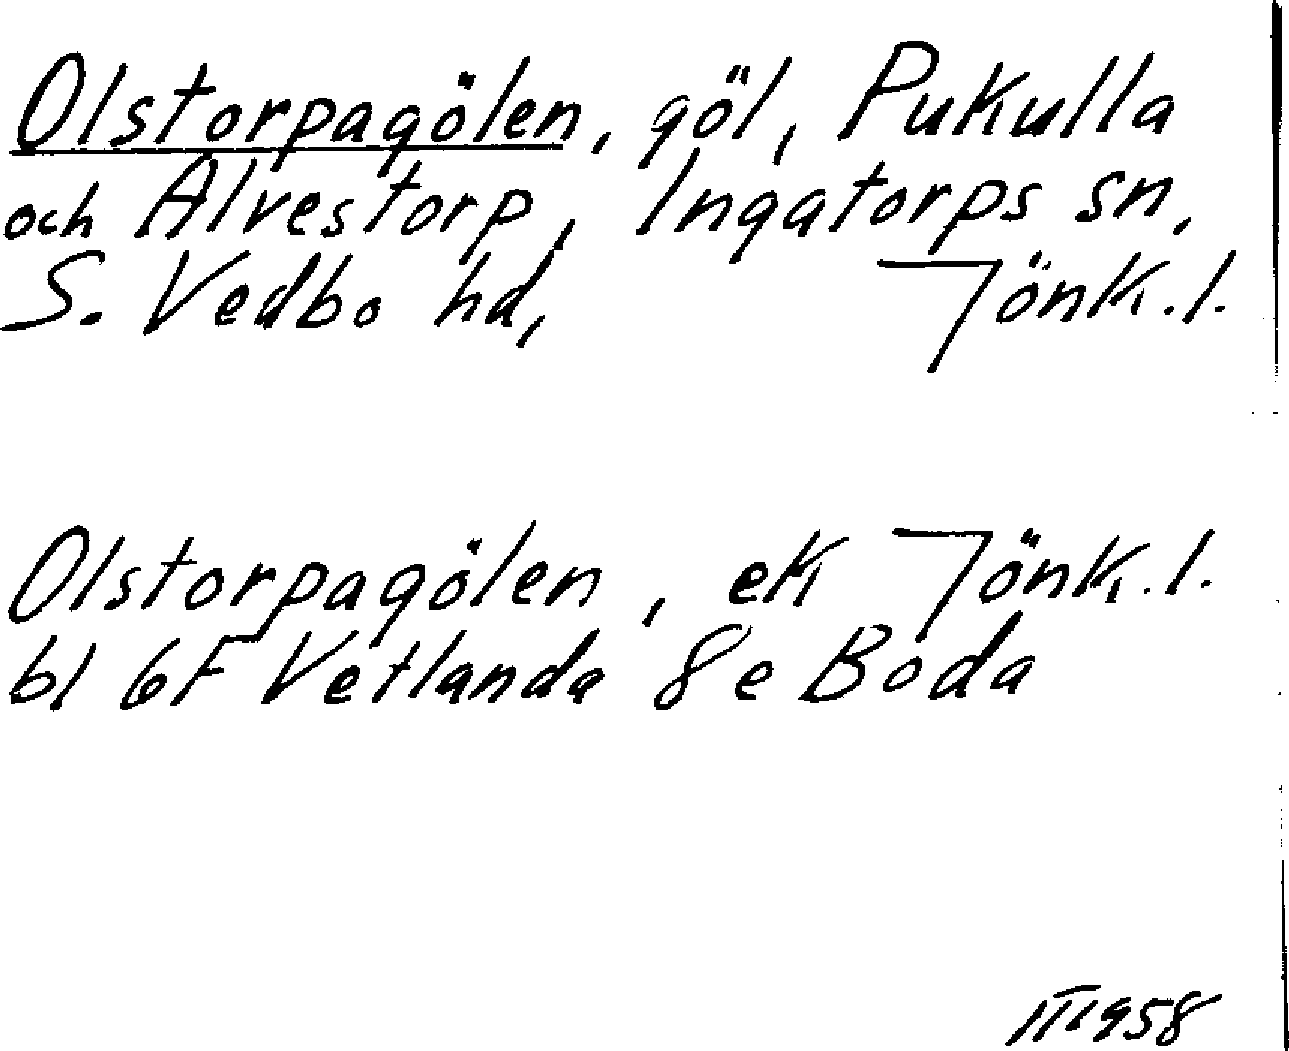 Olstorpagölen, göl, Pukulla
och Älvestorp, Ingatorps sn,
S. Vedbo hd, Jönk.l.
Olstorpagölen, ek Jönk.l.
bl 6F Vetlanda 8e Boda